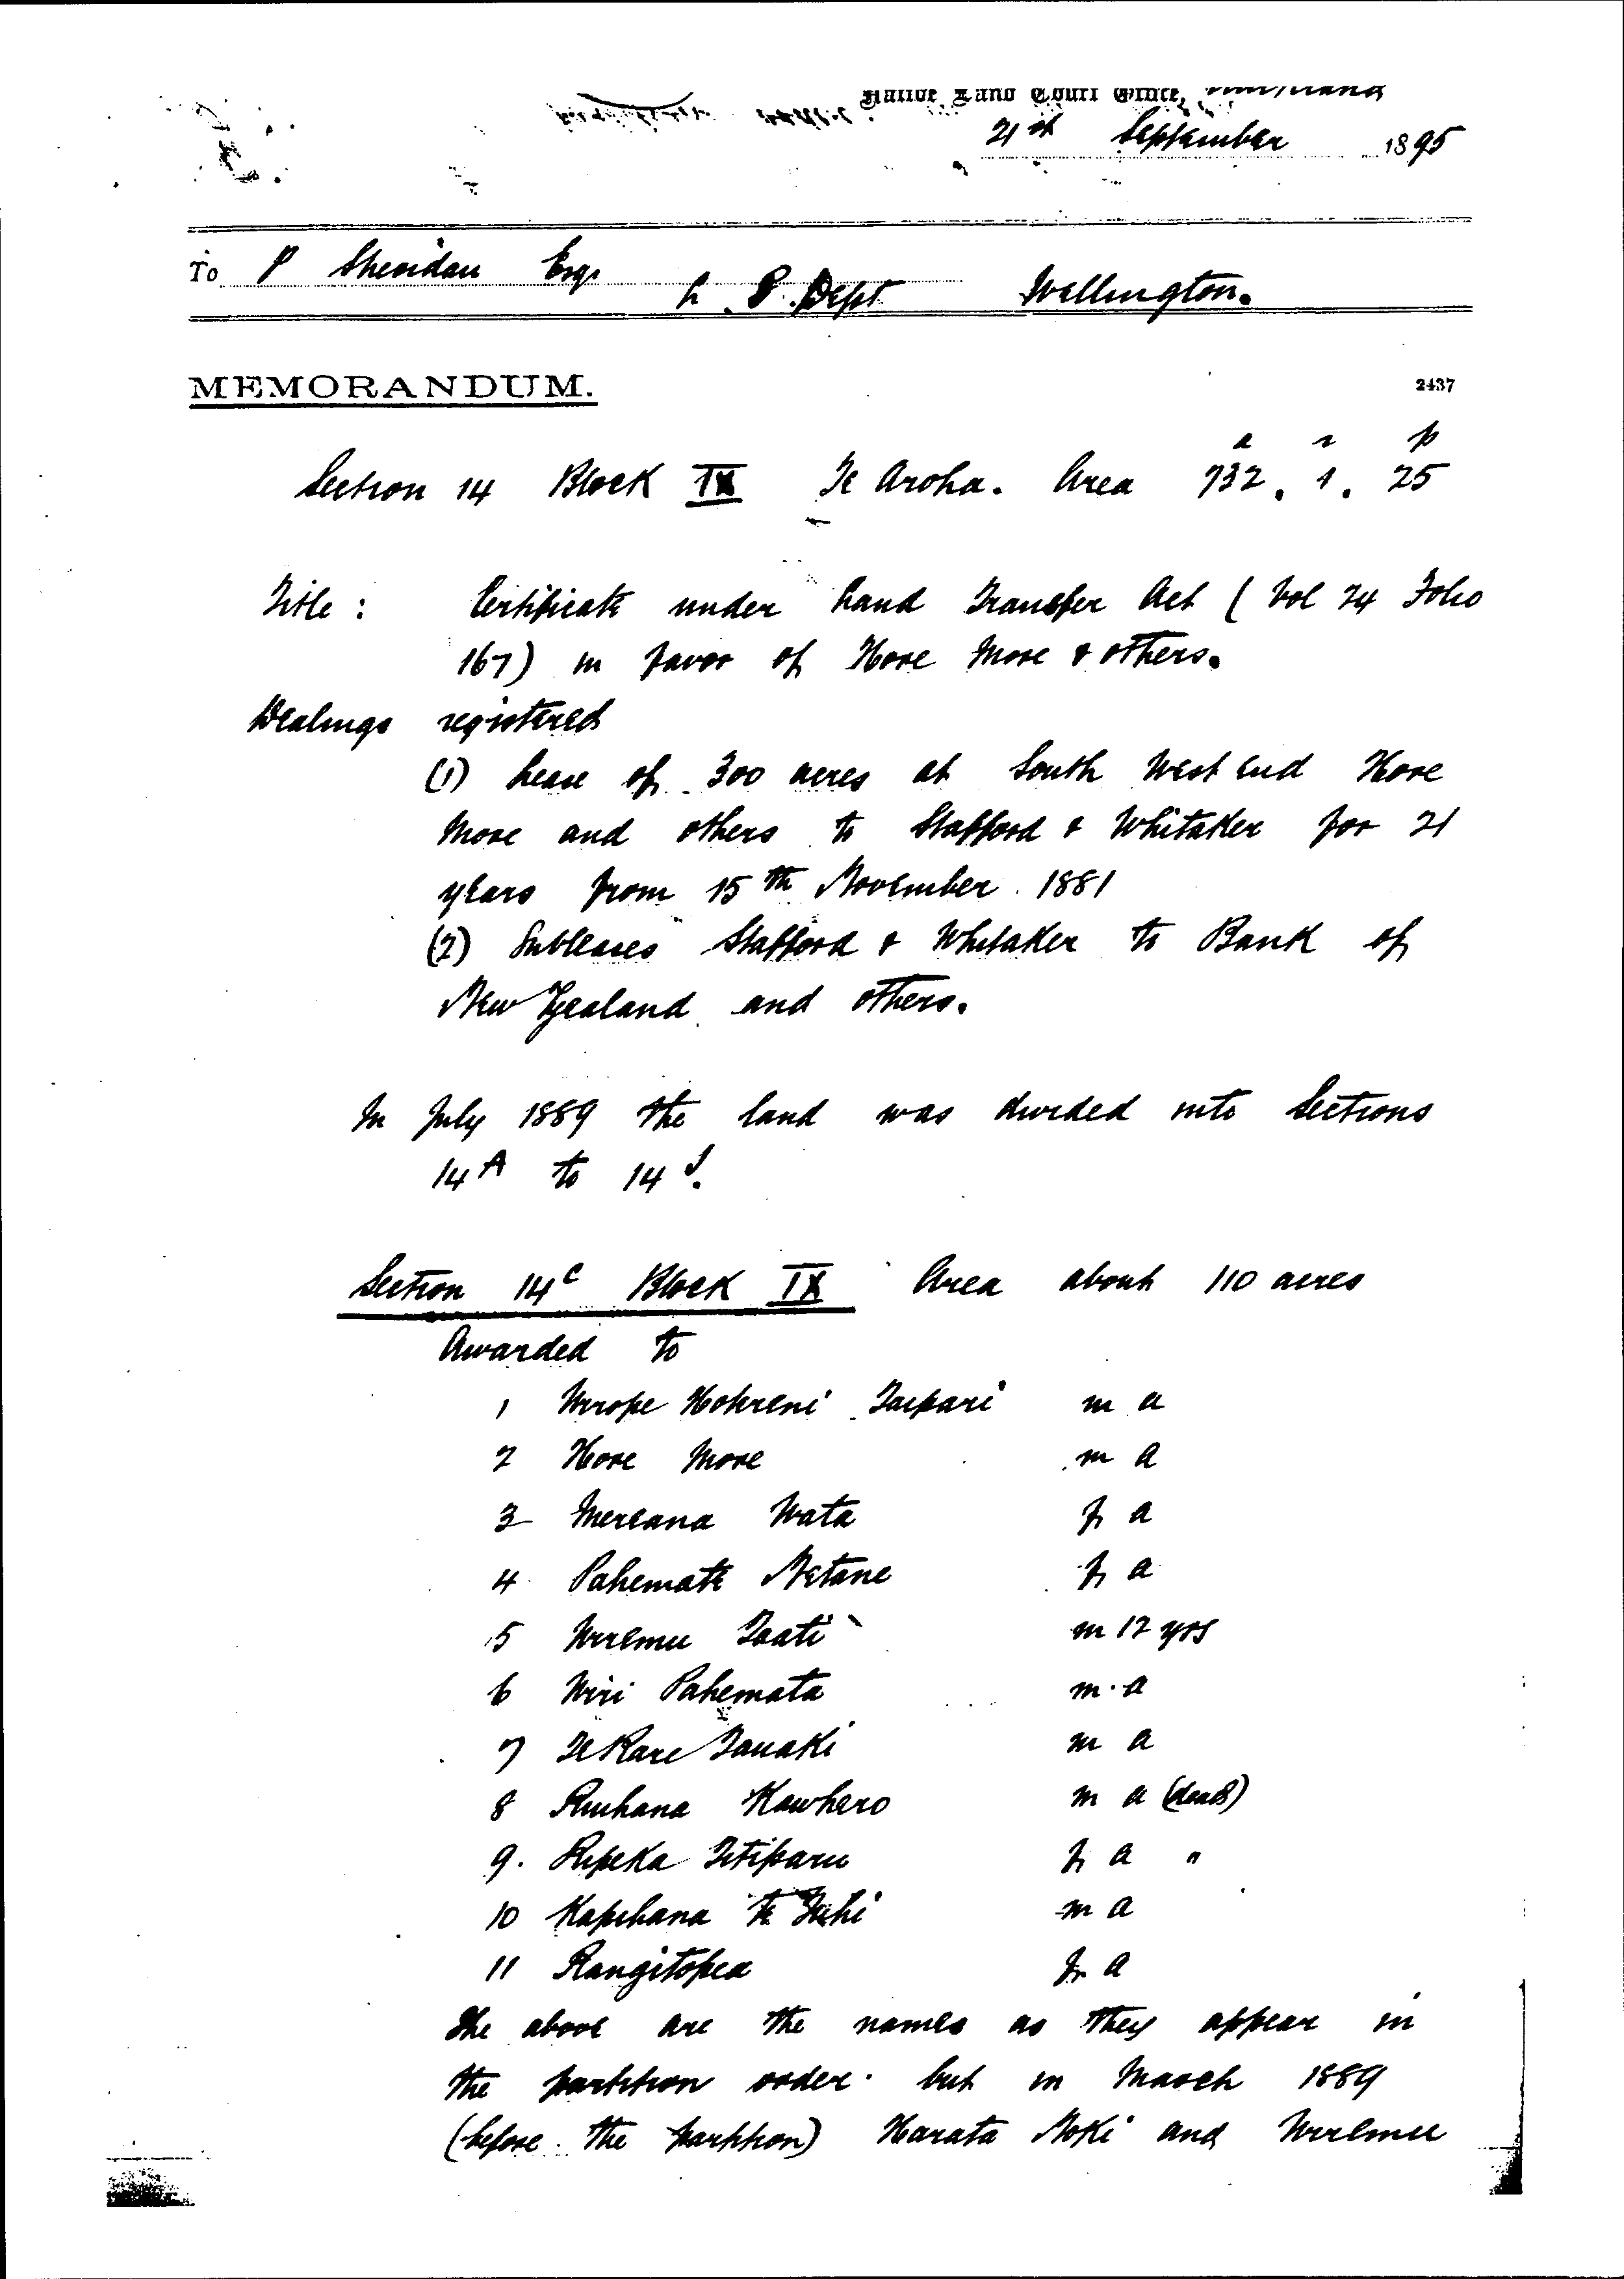 Native Land Court Office,
21st September 1895
To P Sheridan Esq.
L P Dept Wellington.
MEMORANDUM. 2437
a r p
Section 14 Block IX Te Aroha. Area 732. 1. 25
Title: Certificate under Land Transfer Act (Vol 24 Folio
167) in favor of Hore More & others.
Dealings registered
(1) Lease of 300 acres at South West end Hore
More and others to Stafford & Whitaker for 21
years from 15th November 1881
(2) Subleases Stafford & Whitaker to Bank of
New Zealand and others.
In July 1889 the land was divided into Sections
14A to 14J.
Section 14C Block IX Area about 110 acres
Awarded to
1 Wirope Hotereni Taipari m a
2 Hore More m a
3 Mereana Wata f a
4 Pahemata Netane f a
5 Wiremu Taati m 12 yrs
6 Wiri Pahemata m a
7 Te Kare Tauaki m a
8 Ruihana Kawhero m a (dead)
9. Ripeka Titiparu f a "
10 Kapihana Te Tuhi m a
11 Rangitopea f a
The above are the names as they appear in
the partition order. but in March 1889
(before the partition) Harata Noki and Wiremu